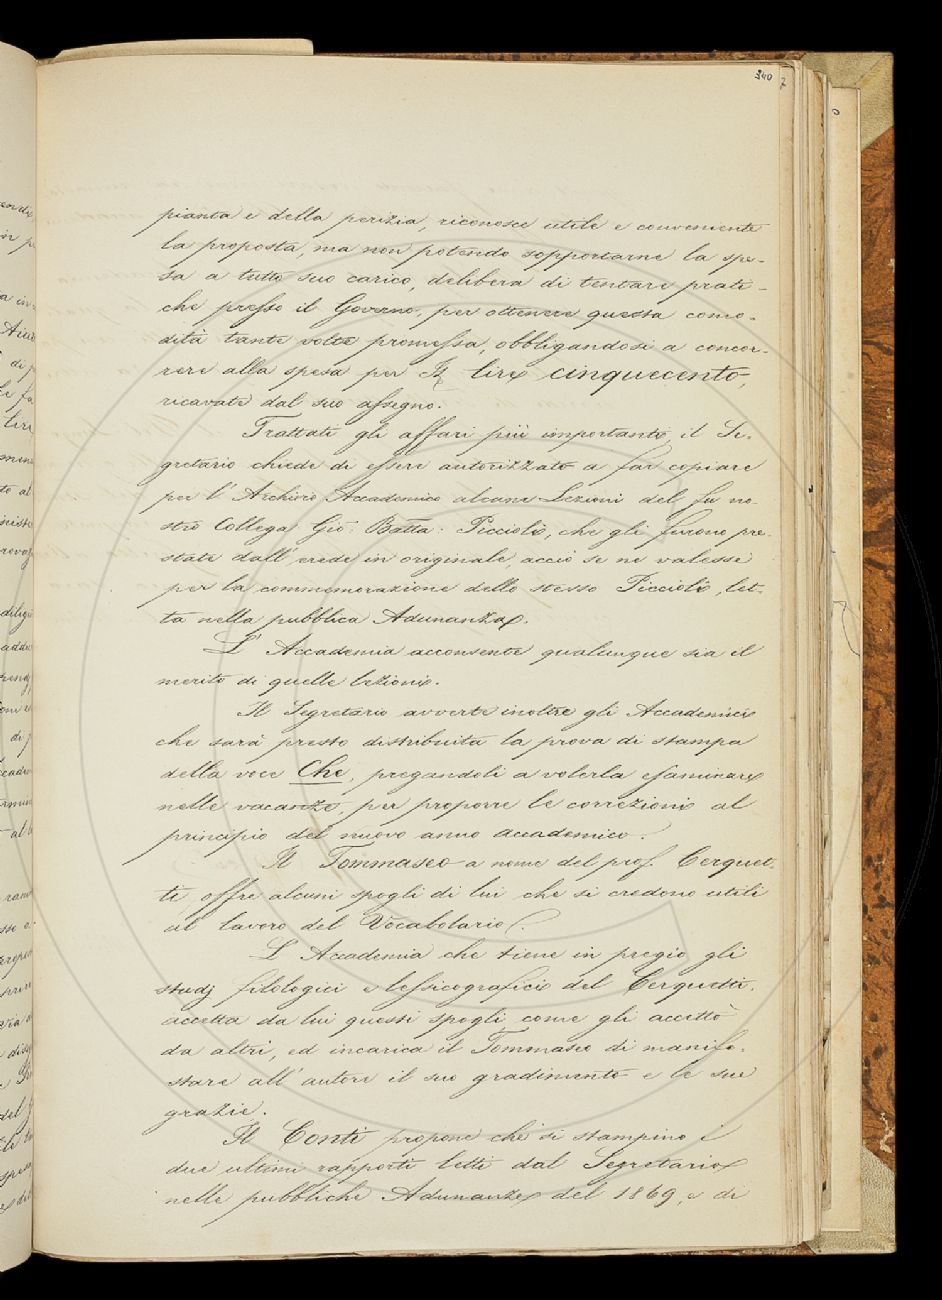 340
7
pianta e della perizia, riconosce utile e conveniente
la proposta, ma non potendo sopportarne la spe-
sa a tutto suo carico, delibera di tentare prati-
che presso il Governo, per ottenere questa como-
dità tante volte promessa, obbligandosi a concor-
rere alla spesa per lire cinquecento,
ricavate dal suo assegno.
Trattati gli affari più importanti, il Se-
gretario chiede di essere autorizzato a far copiare
per l'Archivio Accademico alcune Lezioni del fu no-
stro Collega Gio: Batta: Piccioli, che gli furono pre-
state dall'erede in originale, acciò se ne valesse
per la commemorazione dello stesso Piccioli, let-
ta nella pubblica Adunanza.
L'Accademia acconsente qualunque sia il
merito di quelle lezioni.
Il Segretario avverte inoltre gli Accademici
che sarà presto distribuita la prova di stampa
della voce Che, pregandoli a volerla esaminare
nelle vacanze, per proporre le correzioni al
principio del nuovo anno accademico.
Il Tommaseo a nome del prof. Cerquet-
ti, offre alcuni spogli di lui che si credono utili
al lavoro del Vocabolario.
L'Accademia che tiene in pregio gli
studj filologici e lessicografici del Cerquetti,
accetta da lui questi spogli come gli accettò
da altri, ed incarica il Tommaseo di manife-
stare all'autore il suo gradimento e le sue
grazie.
Il Conti propone che si stampino i
due ultimi rapporti letti dal Segretario
nelle pubbliche Adunanze del 1869, e di